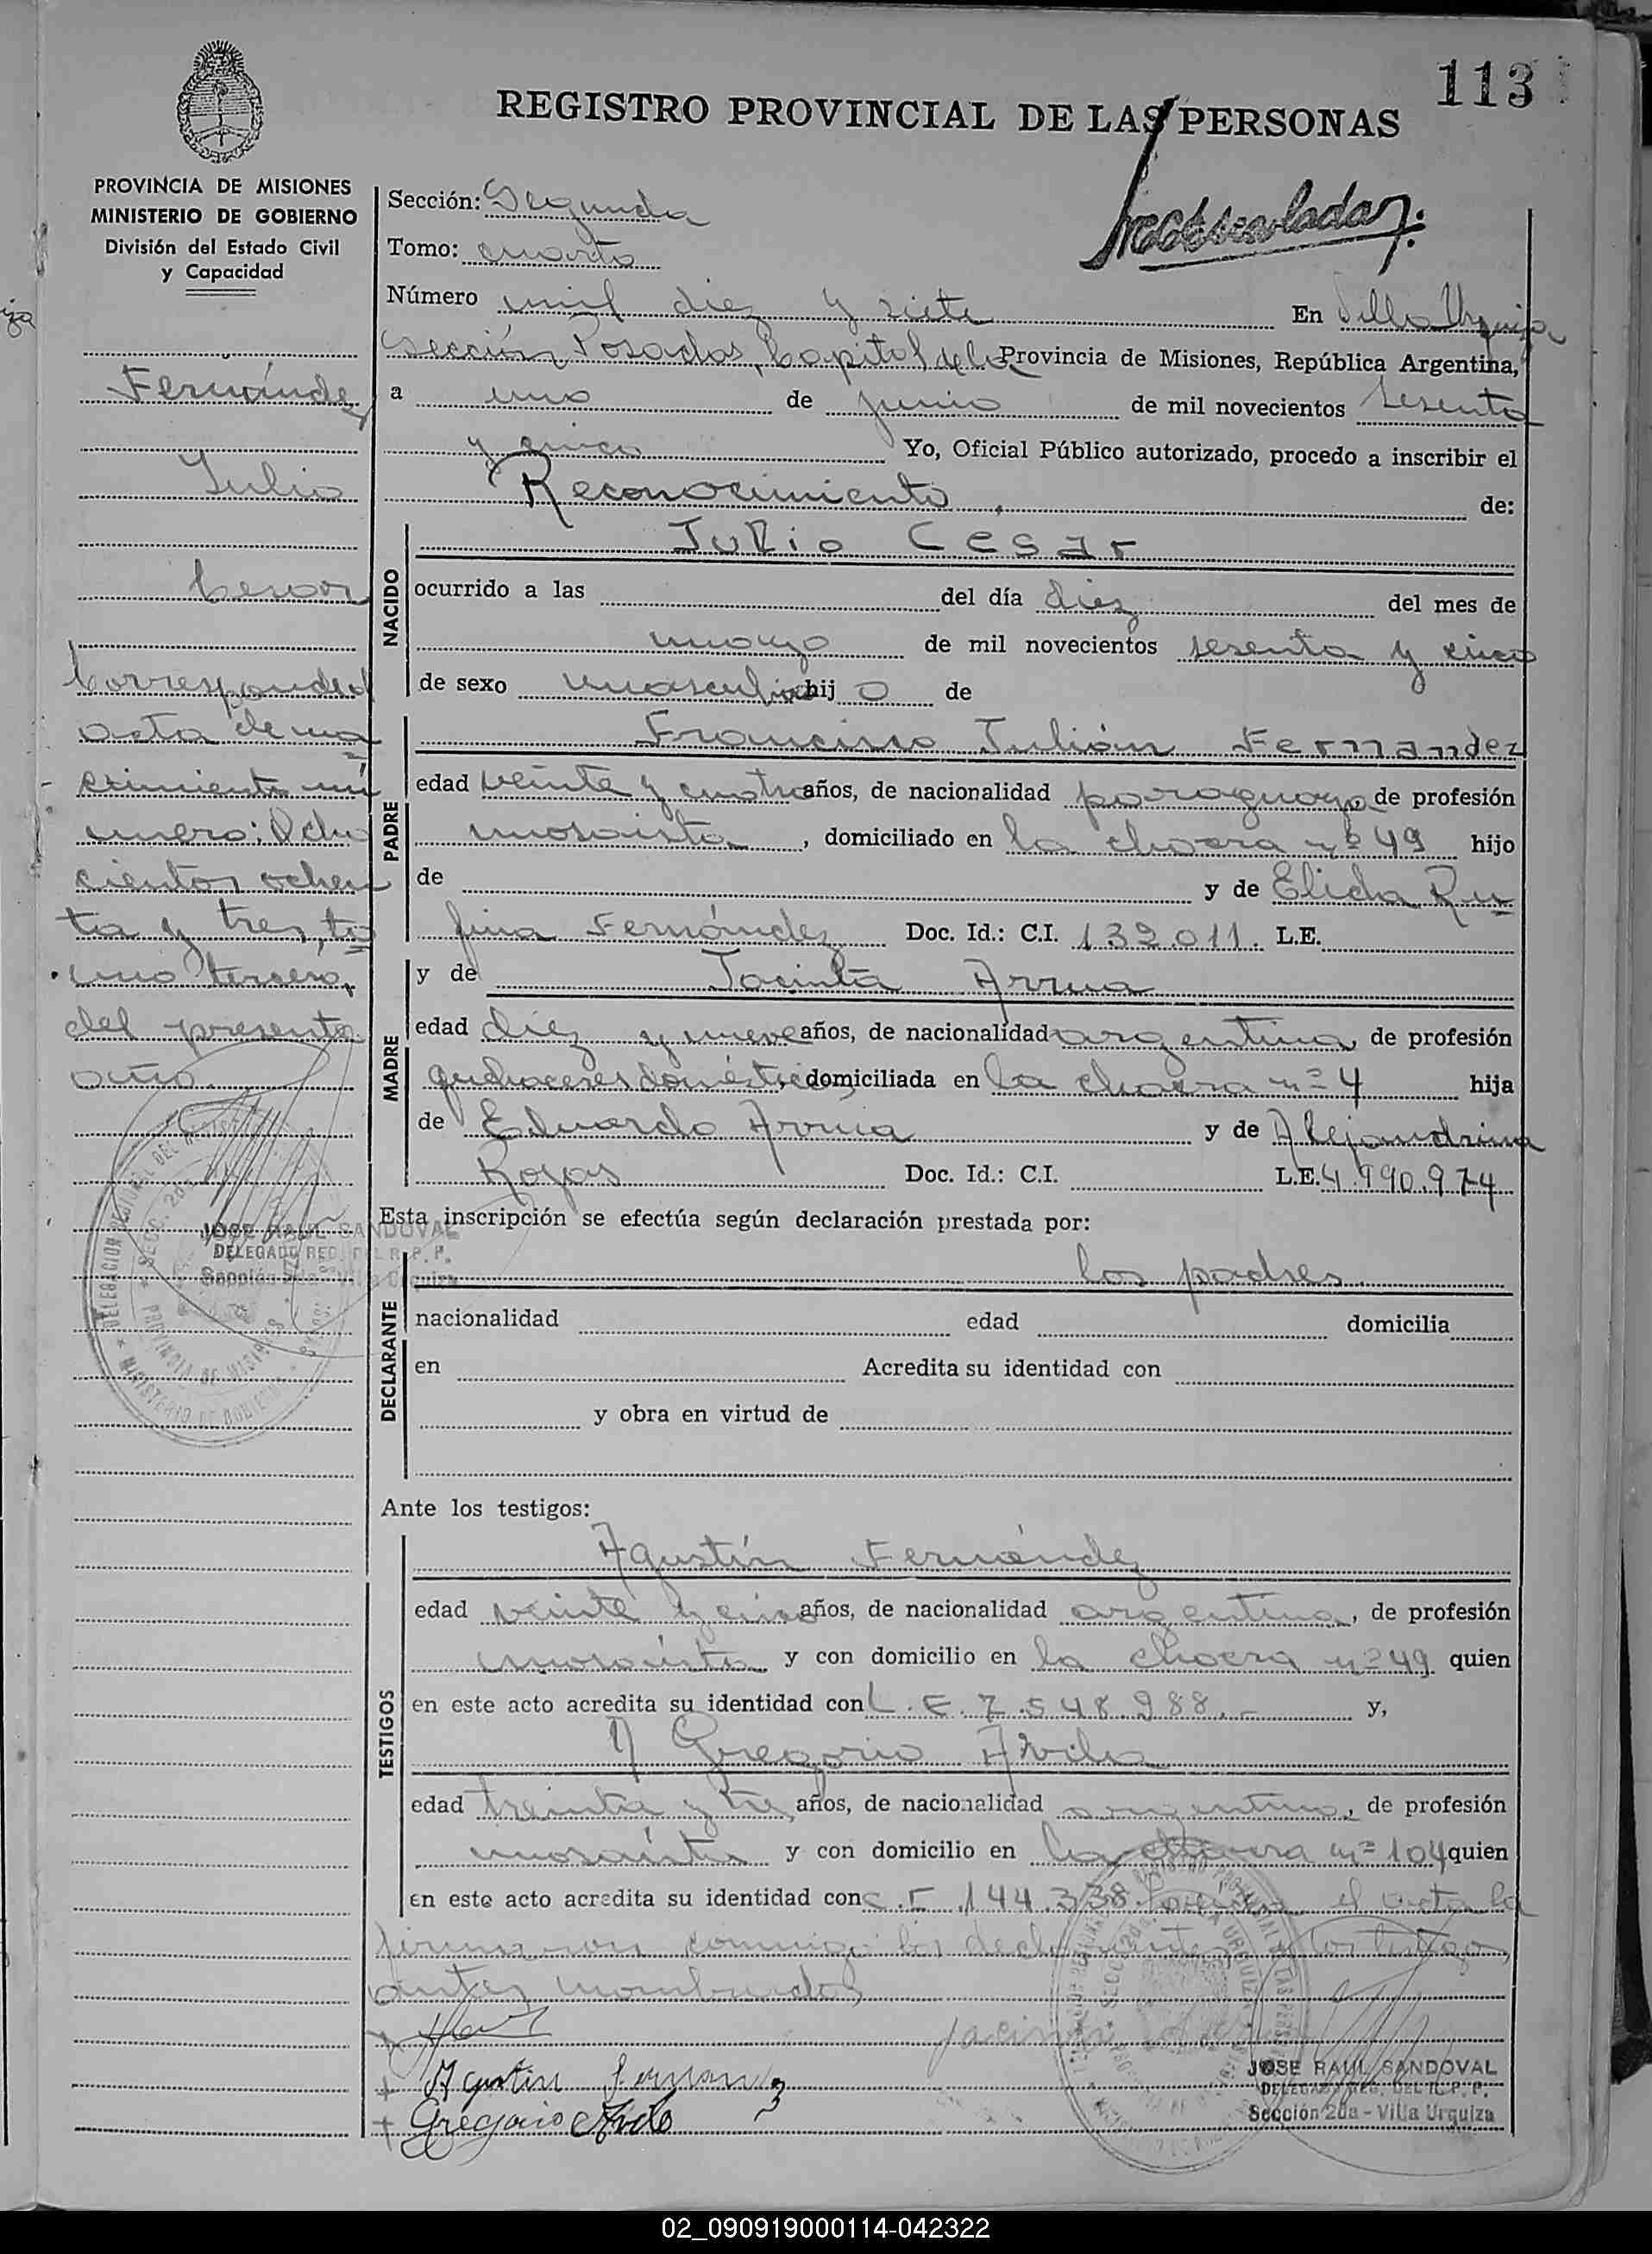 113
REGISTRO PROVINCIAL DE LAS PERSONAS
PROVINCIA DE MISIONES
MINISTERIO DE GOBIERNO
División del Estado Civil
y Capacidad
Fernández
Julio
Cesar
Corresponde al
acta de na
cimiento nú
mero: Ocho
cientos ochen
ta y tres, to
mo tercero,
del presente
año.
JOSE RAUL SANDOVAL
DELEGADO REG. DEL R. P. P.
Sección 2da - Villa Urquiza
Sección: Segunda
Tomo: cuarto
Número mil diez y siete En Villa Urquiza
sección Posadas, Capital de la Provincia de Misiones, República Argentina,
a uno de junio de mil novecientos sesenta
y cinco Yo, Oficial Público autorizado, procedo a inscribir el
Reconocimiento de:
NACIDO
Julio Cesar
ocurrido a las del día diez del mes de
mayo de mil novecientos sesenta y cinco
de sexo masculino hij o de
PADRE
Francisco Julián Fernandez
edad veinte y cuatro años, de nacionalidad paraguaya, de profesión
mosaista, domiciliado en la chacra nº 49 hijo
de y de Elida Ru
fina Fernández Doc. Id.: C.I. 132.011. L.E.
MADRE
y de Jacinta Arrua
edad diez y nueve años, de nacionalidad argentina, de profesión
quehaceres domésticos, domiciliada en la chacra nº 4 hija
de Eduardo Arrua y de Alejandrina
Rojas Doc. Id.: C.I. L.E. 4.990.974
Esta inscripción se efectúa según declaración prestada por:
DECLARANTE
los padres
nacionalidad edad domicilia
en Acredita su identidad con
y obra en virtud de
Ante los testigos:
TESTIGOS
Agustín Fernández
edad veinte y cinco años, de nacionalidad argentina, de profesión
mosaista y con domicilio en la chacra nº 49 quien
en este acto acredita su identidad con L.E. 7.548.988.- y,
Gregorio Avila
edad treinta y tres años, de nacionalidad argentina, de profesión
mosaista y con domicilio en la chacra nº 104 quien
en este acto acredita su identidad con C.I. 144.338. el acta la
firmaron conmigo los declarantes y los testigos
antes nombrados
Jacinta
Agustin Fernandez
Gregorio Avila
JOSE RAUL SANDOVAL
DELEGADO REG. DEL R. P. P.
Sección 2da - Villa Urquiza
02_090919000114-042322